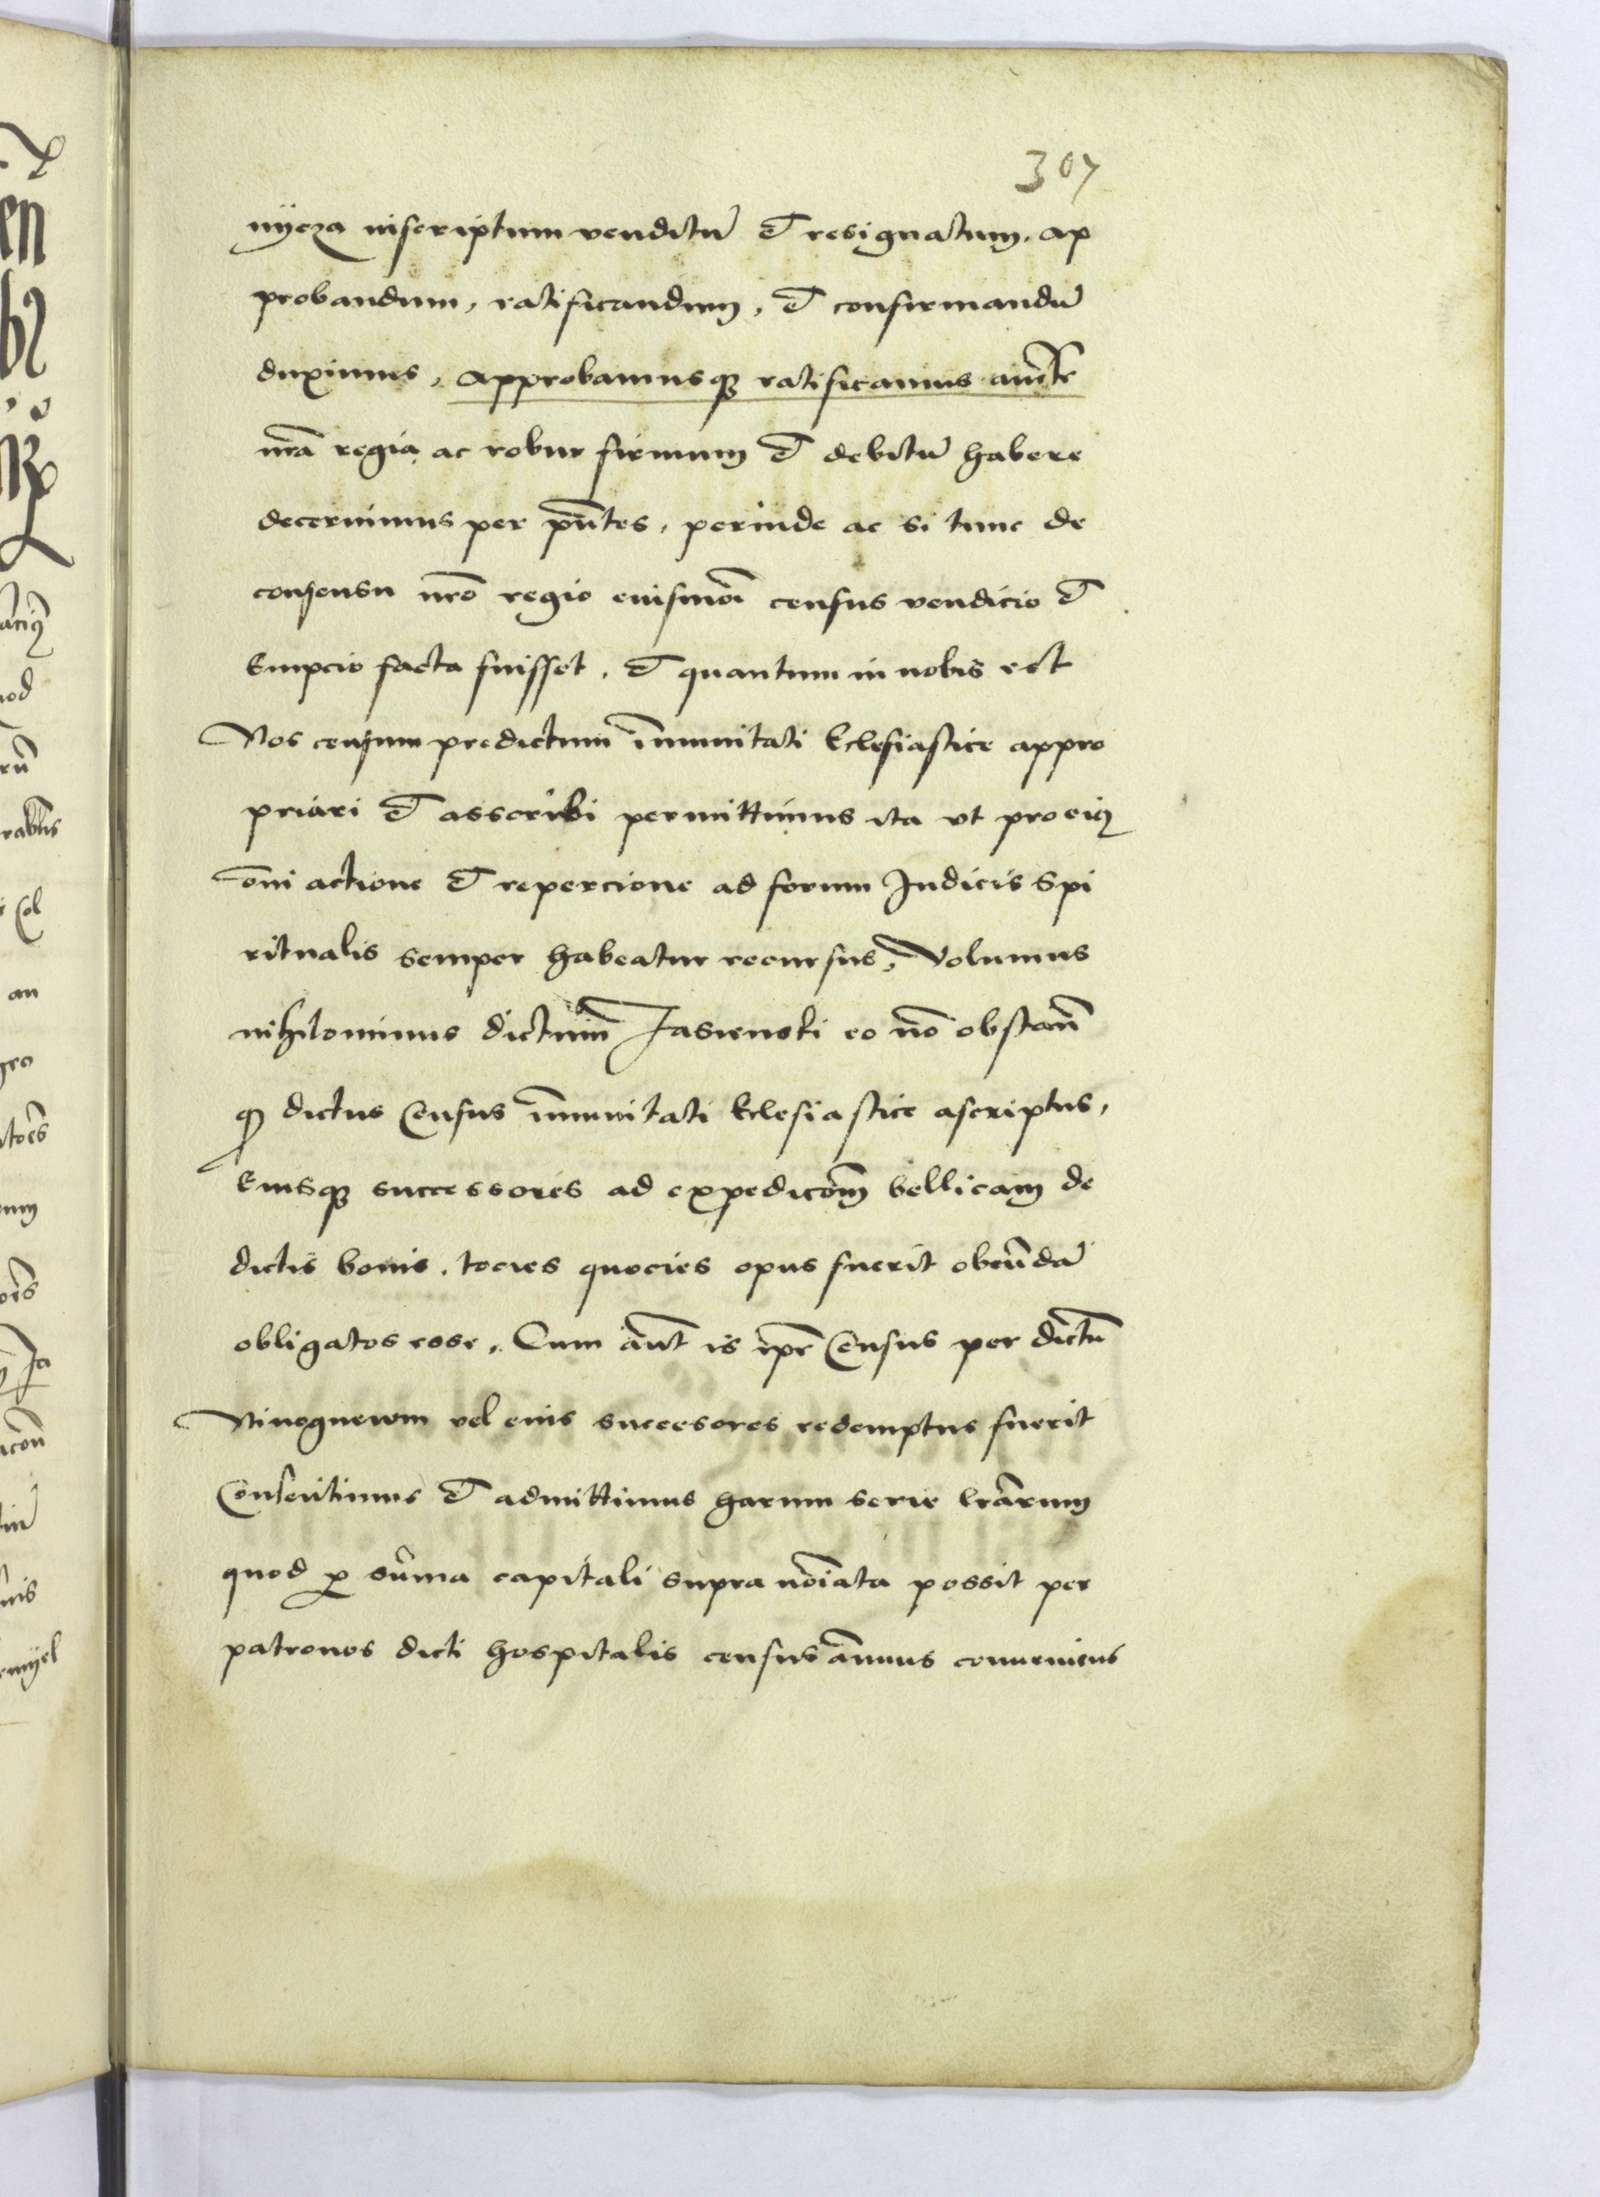 307
nyeza inscriptum venditũ et resignatum, ap
probandum, ratificandum, et confirmandũ
duximus, approbamusq₃ ratificamus auc̃te
nr̃a regia ac robur firmum et debitũ habere
decernimus per pñtes, perinde ac si tunc de
consensu nr̃o regio euismõi census vendicio et
Empcio facta fuisset, et quantum in nobis est
Nos censum predictum im̃unitati Ecclesiastice appro
priari et asscribi permittimus ita vt pro eiꝰ
om̃i actione et repercione ad forum Judicis Spi
ritualis semper habeatur recursus, Volumus
nihilominus dictum Jasienski eo nõ obstañ
ꝙ dictus Census im̃unitati Ecclesiastice ascriptus,
Eiusq₃ successores ad expedicõm bellicam de
dictis bonis, tocies quocies opus fuerit obeũdã
obligatos esse, Cum aũt is ip̃e Census per dictũ
Ninogneuum vel eius succesores redemptus fuerit
Consentimus et admittimus harum serie lr̃arum
quod ꝓ sum̃a capitali supra nõiata possit per
patronos dicti hospitalis census añnuus conueniens